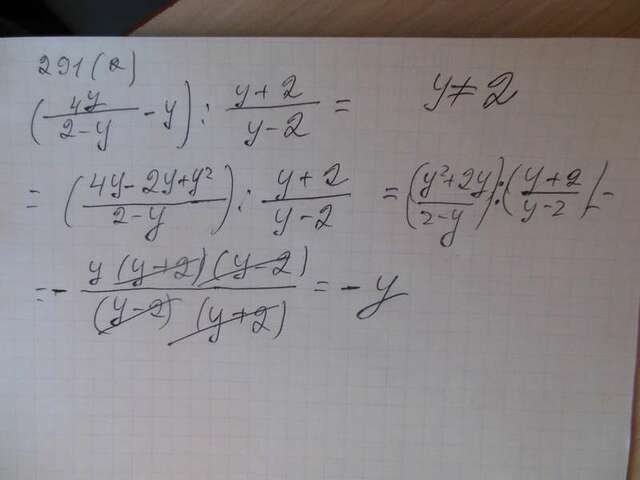 291(2)
(4y/2-y - y) : y+2/y-2 = y≠2
= (4y-2y+y²/2-y) : y+2/y-2 = (y²+2y/2-y) : (y+2/y-2) =
= - y(y+2)(y-2)/(y-2)(y+2) = -y